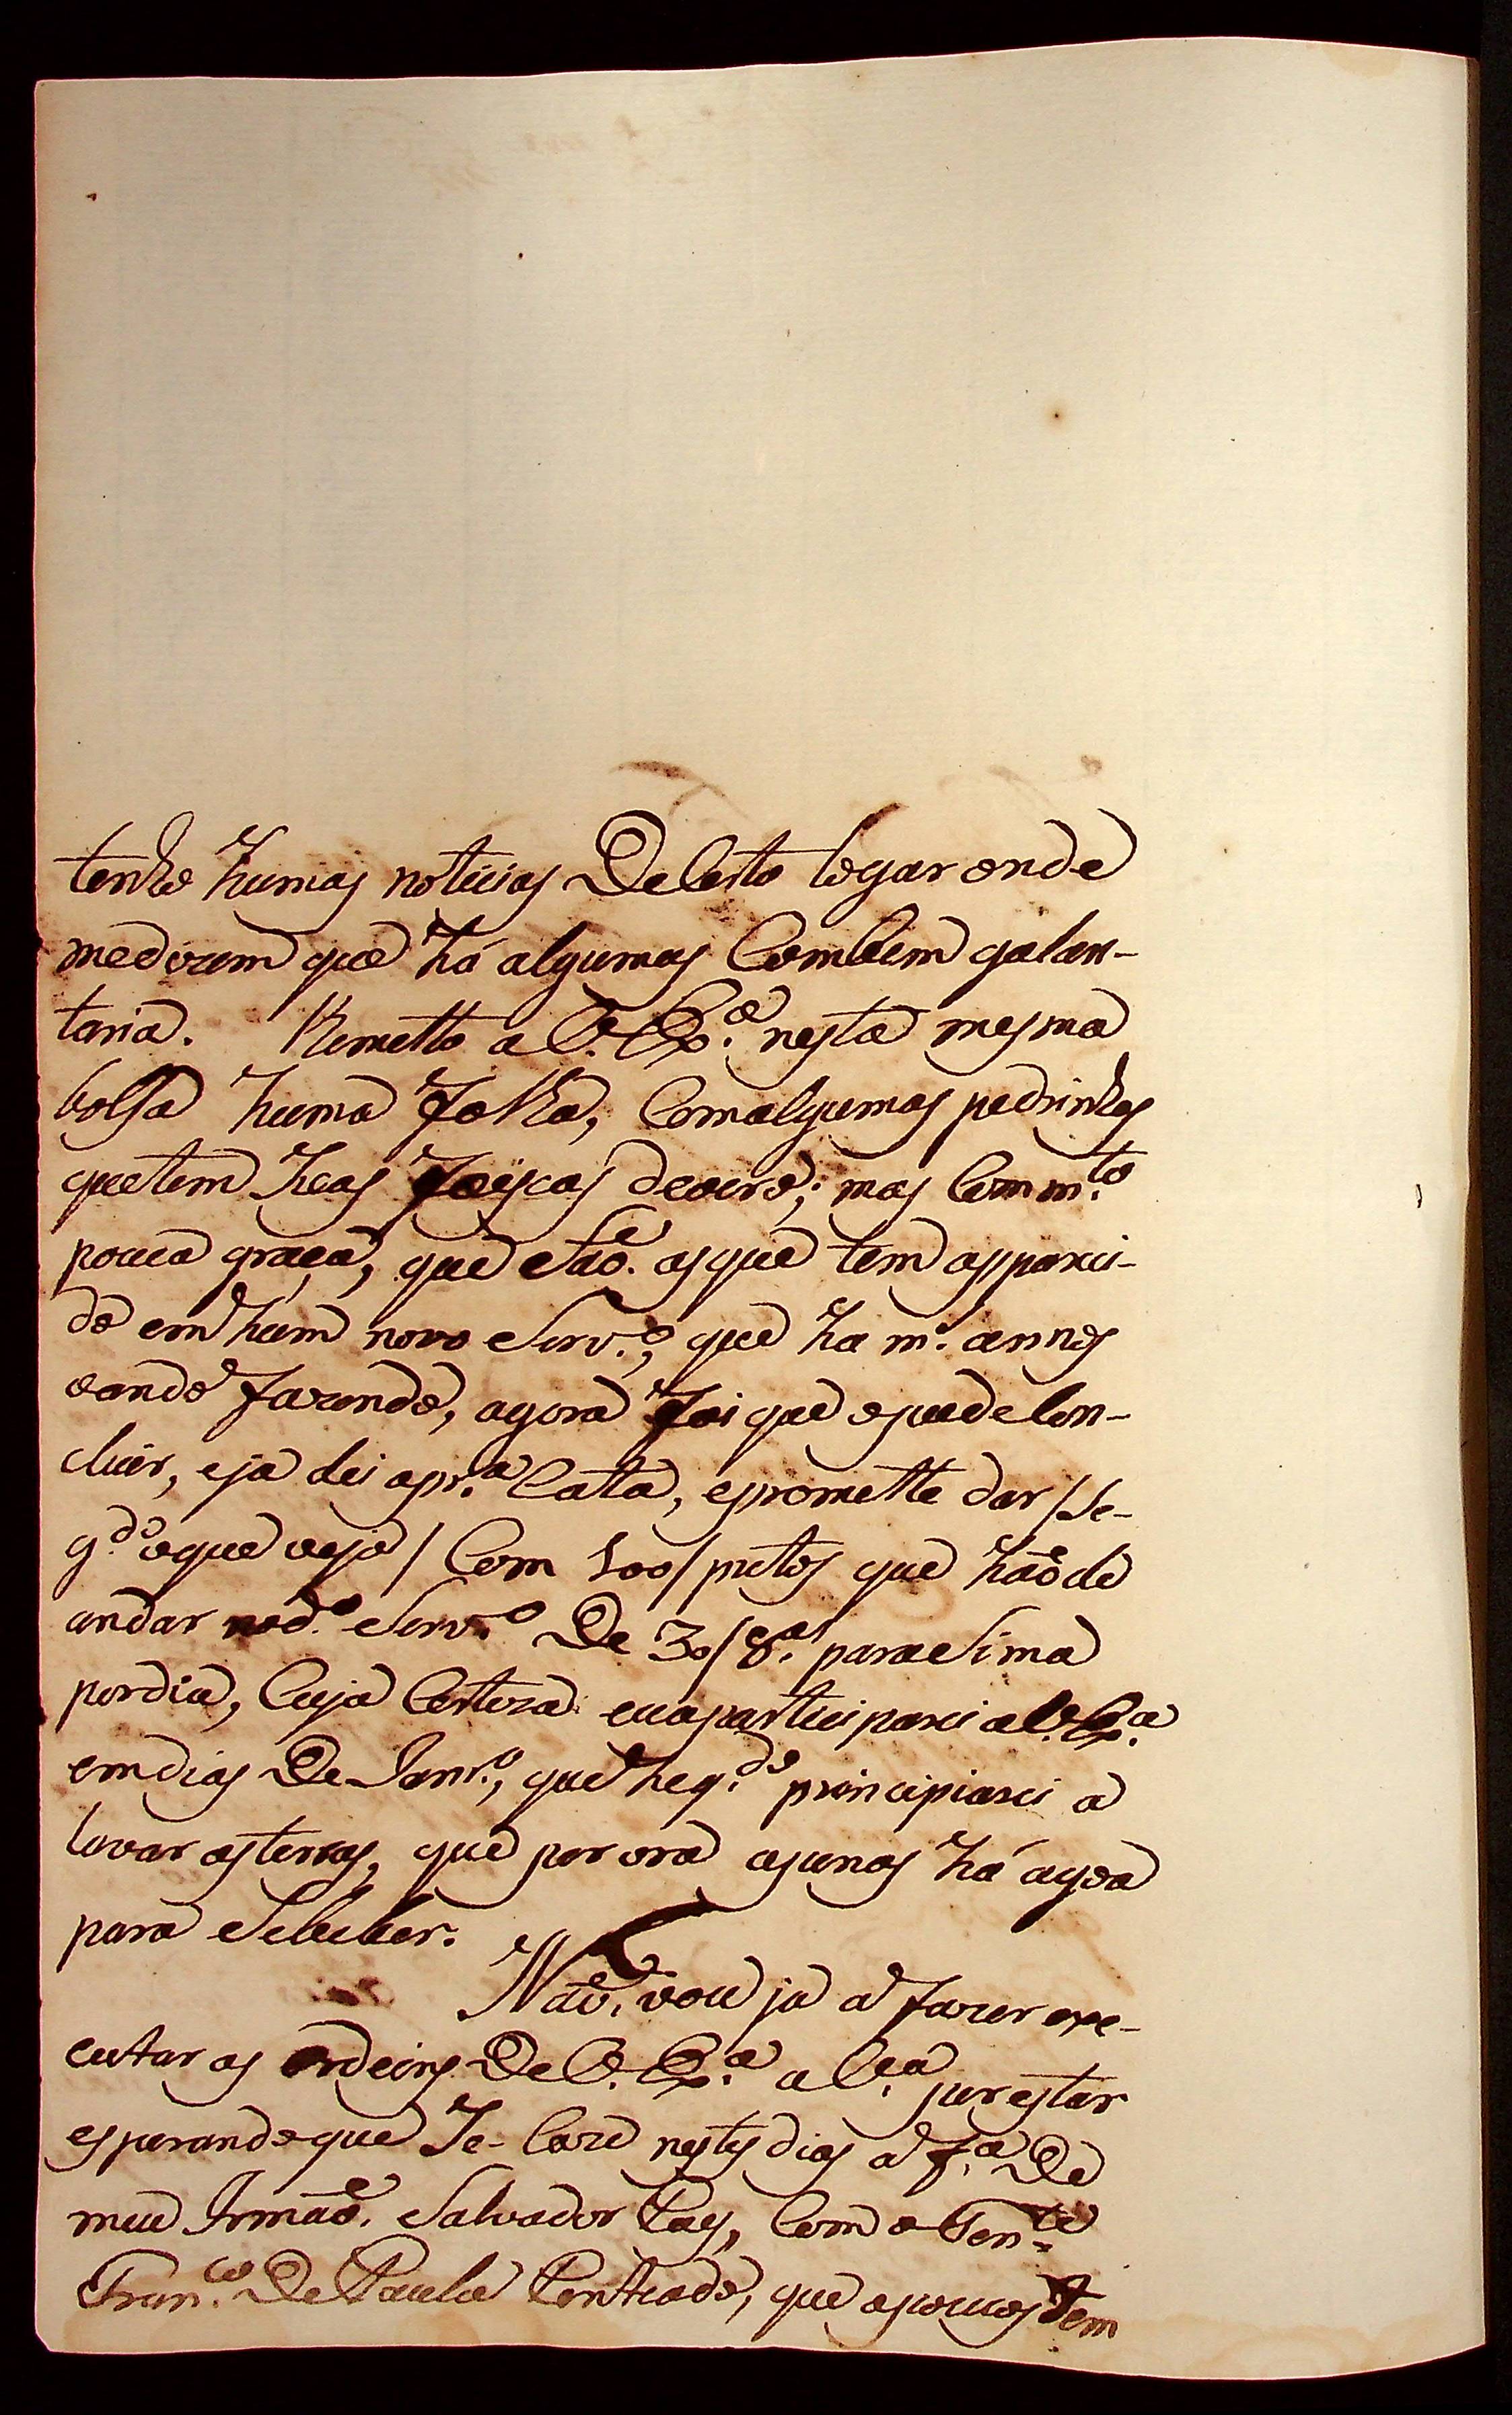 tenho humas noticias De Certo logar onde
medizem que há algumas Combem galan-
taria. Remetto a V. Ex.ª nesta mesma
bolsa huma folha, Comalgumas pedrinhas
quetem huas faiscas deouro; mas Com m.to
pouca graça, que Saõ. asque tem appareci-
do em hum novo Serv.º, que ha m.s annos
oando fazendo, agora foi que opude Con-
cluir, eja dei apr.ª Cata, epromette dar /Se-
g.do oque vejo/ Com 100/ pretos que haõde
andar nod.º Serv.º De 30/8.as para Sima
pordia, Cuja Certeza euaparticiparei aV.Ex.ª
emdias De Janr.º, que heq.do principiarei a
lavar asterras, que por ora apenas há agoa
para Sebeber.
Naõ. vou ja a fazer exe-
cutar as ordeins De V. Ex.ª a C.ª por estar
esperandoque Se-Caze nestes dias a f.ª De
meu Irmaõ. Salvador Paes, Com o Ten.te
Fran.co De Paula Penteado, que apoucos tem